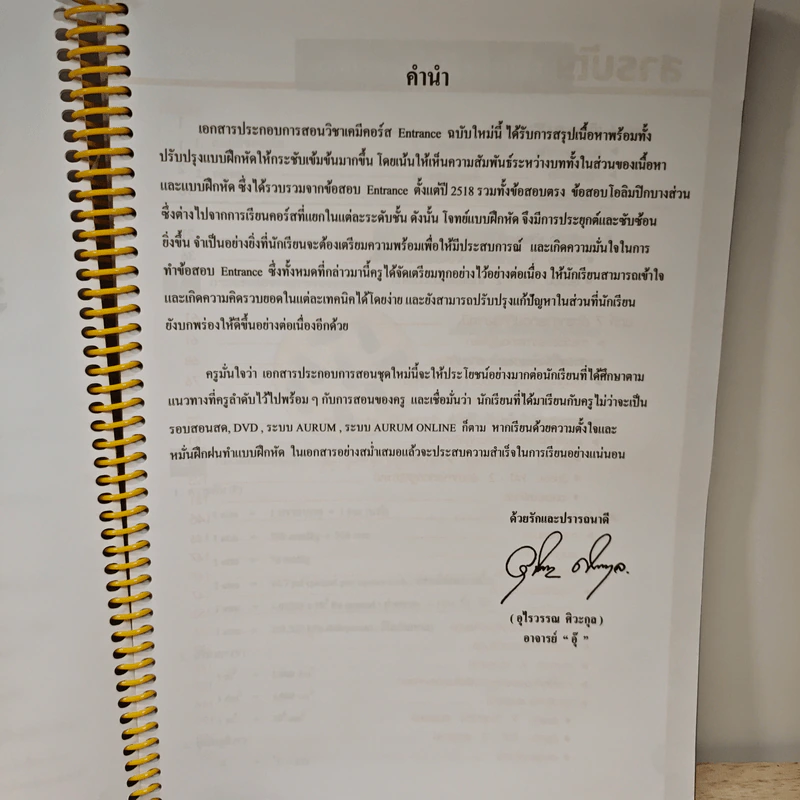 คำนำ
เอกสารประกอบการสอนวิชาเคมีคอร์ส Entrance ฉบับใหม่นี้ ได้รับการสรุปเนื้อหาพร้อมทั้ง
ปรับปรุงแบบฝึกหัดให้กระชับเข้มข้นมากขึ้น โดยเน้นให้เห็นความสัมพันธ์ระหว่างบททั้งในส่วนของเนื้อหา
และแบบฝึกหัด ซึ่งได้รวบรวมจากข้อสอบ Entrance ตั้งแต่ปี 2518 รวมทั้งข้อสอบตรง ข้อสอบโอลิมปิกบางส่วน
ซึ่งต่างไปจากการเรียนคอร์สที่แยกในแต่ละระดับชั้น ดังนั้น โจทย์แบบฝึกหัด จึงมีการประยุกต์และซับซ้อน
ยิ่งขึ้น จำเป็นอย่างยิ่งที่นักเรียนจะต้องเตรียมความพร้อมเพื่อให้มีประสบการณ์ และเกิดความมั่นใจในการ
ทำข้อสอบ Entrance ซึ่งทั้งหมดที่กล่าวมานี้ครูได้จัดเตรียมทุกอย่างไว้อย่างต่อเนื่อง ให้นักเรียนสามารถเข้าใจ
และเกิดความคิดรวบยอดในแต่ละเทคนิคได้โดยง่าย และยังสามารถปรับปรุงแก้ปัญหาในส่วนที่นักเรียน
ยังบกพร่องให้ดีขึ้นอย่างต่อเนื่องอีกด้วย
ครูมั่นใจว่า เอกสารประกอบการสอนชุดใหม่นี้จะให้ประโยชน์อย่างมากต่อนักเรียนที่ได้ศึกษาตาม
แนวทางที่ครูลำดับไว้ไปพร้อม ๆ กับการสอนของครู และเชื่อมั่นว่า นักเรียนที่ได้มาเรียนกับครูไม่ว่าจะเป็น
รอบสอนสด, DVD , ระบบ AURUM , ระบบ AURUM ONLINE ก็ตาม หากเรียนด้วยความตั้งใจและ
หมั่นฝึกฝนทำแบบฝึกหัด ในเอกสารอย่างสม่ำเสมอแล้วจะประสบความสำเร็จในการเรียนอย่างแน่นอน
ด้วยรักและปรารถนาดี
( อุไรวรรณ ศิวะกุล )
อาจารย์ “ อุ๊ ”